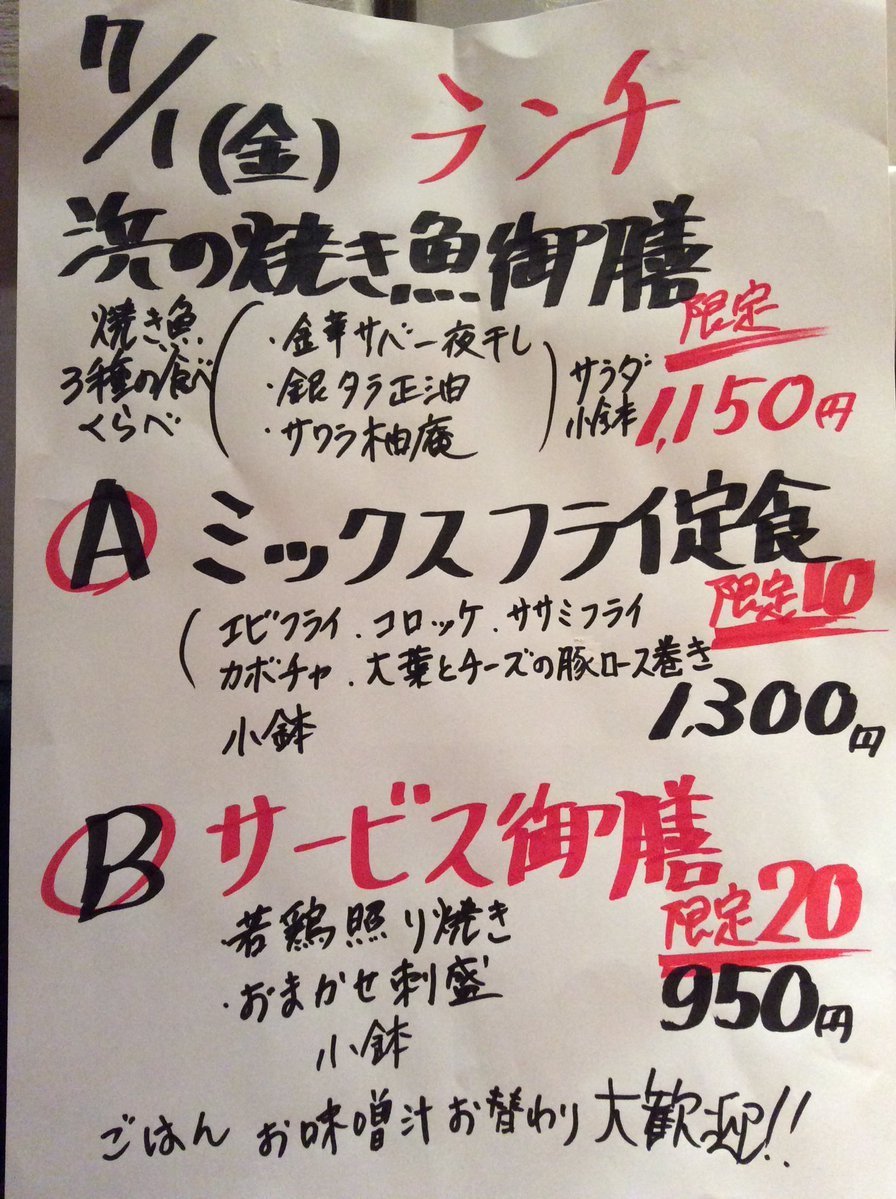 7/1(金) ランチ
浜の焼き魚御膳
限定
焼き魚
3種の食べ
くらべ
・金華サバ一夜干し
・銀タラ正油
・サワラ柚庵
サラダ
小鉢
1,150円
A ミックスフライ定食
限定10
エビフライ．コロッケ．ササミフライ
カボチャ．大葉とチーズの豚ロース巻き
小鉢
1,300円
B サービス御膳
限定20
・若鶏照り焼き
・おまかせ刺盛
小鉢
950円
ごはん お味噌汁お替わり大歓迎!!